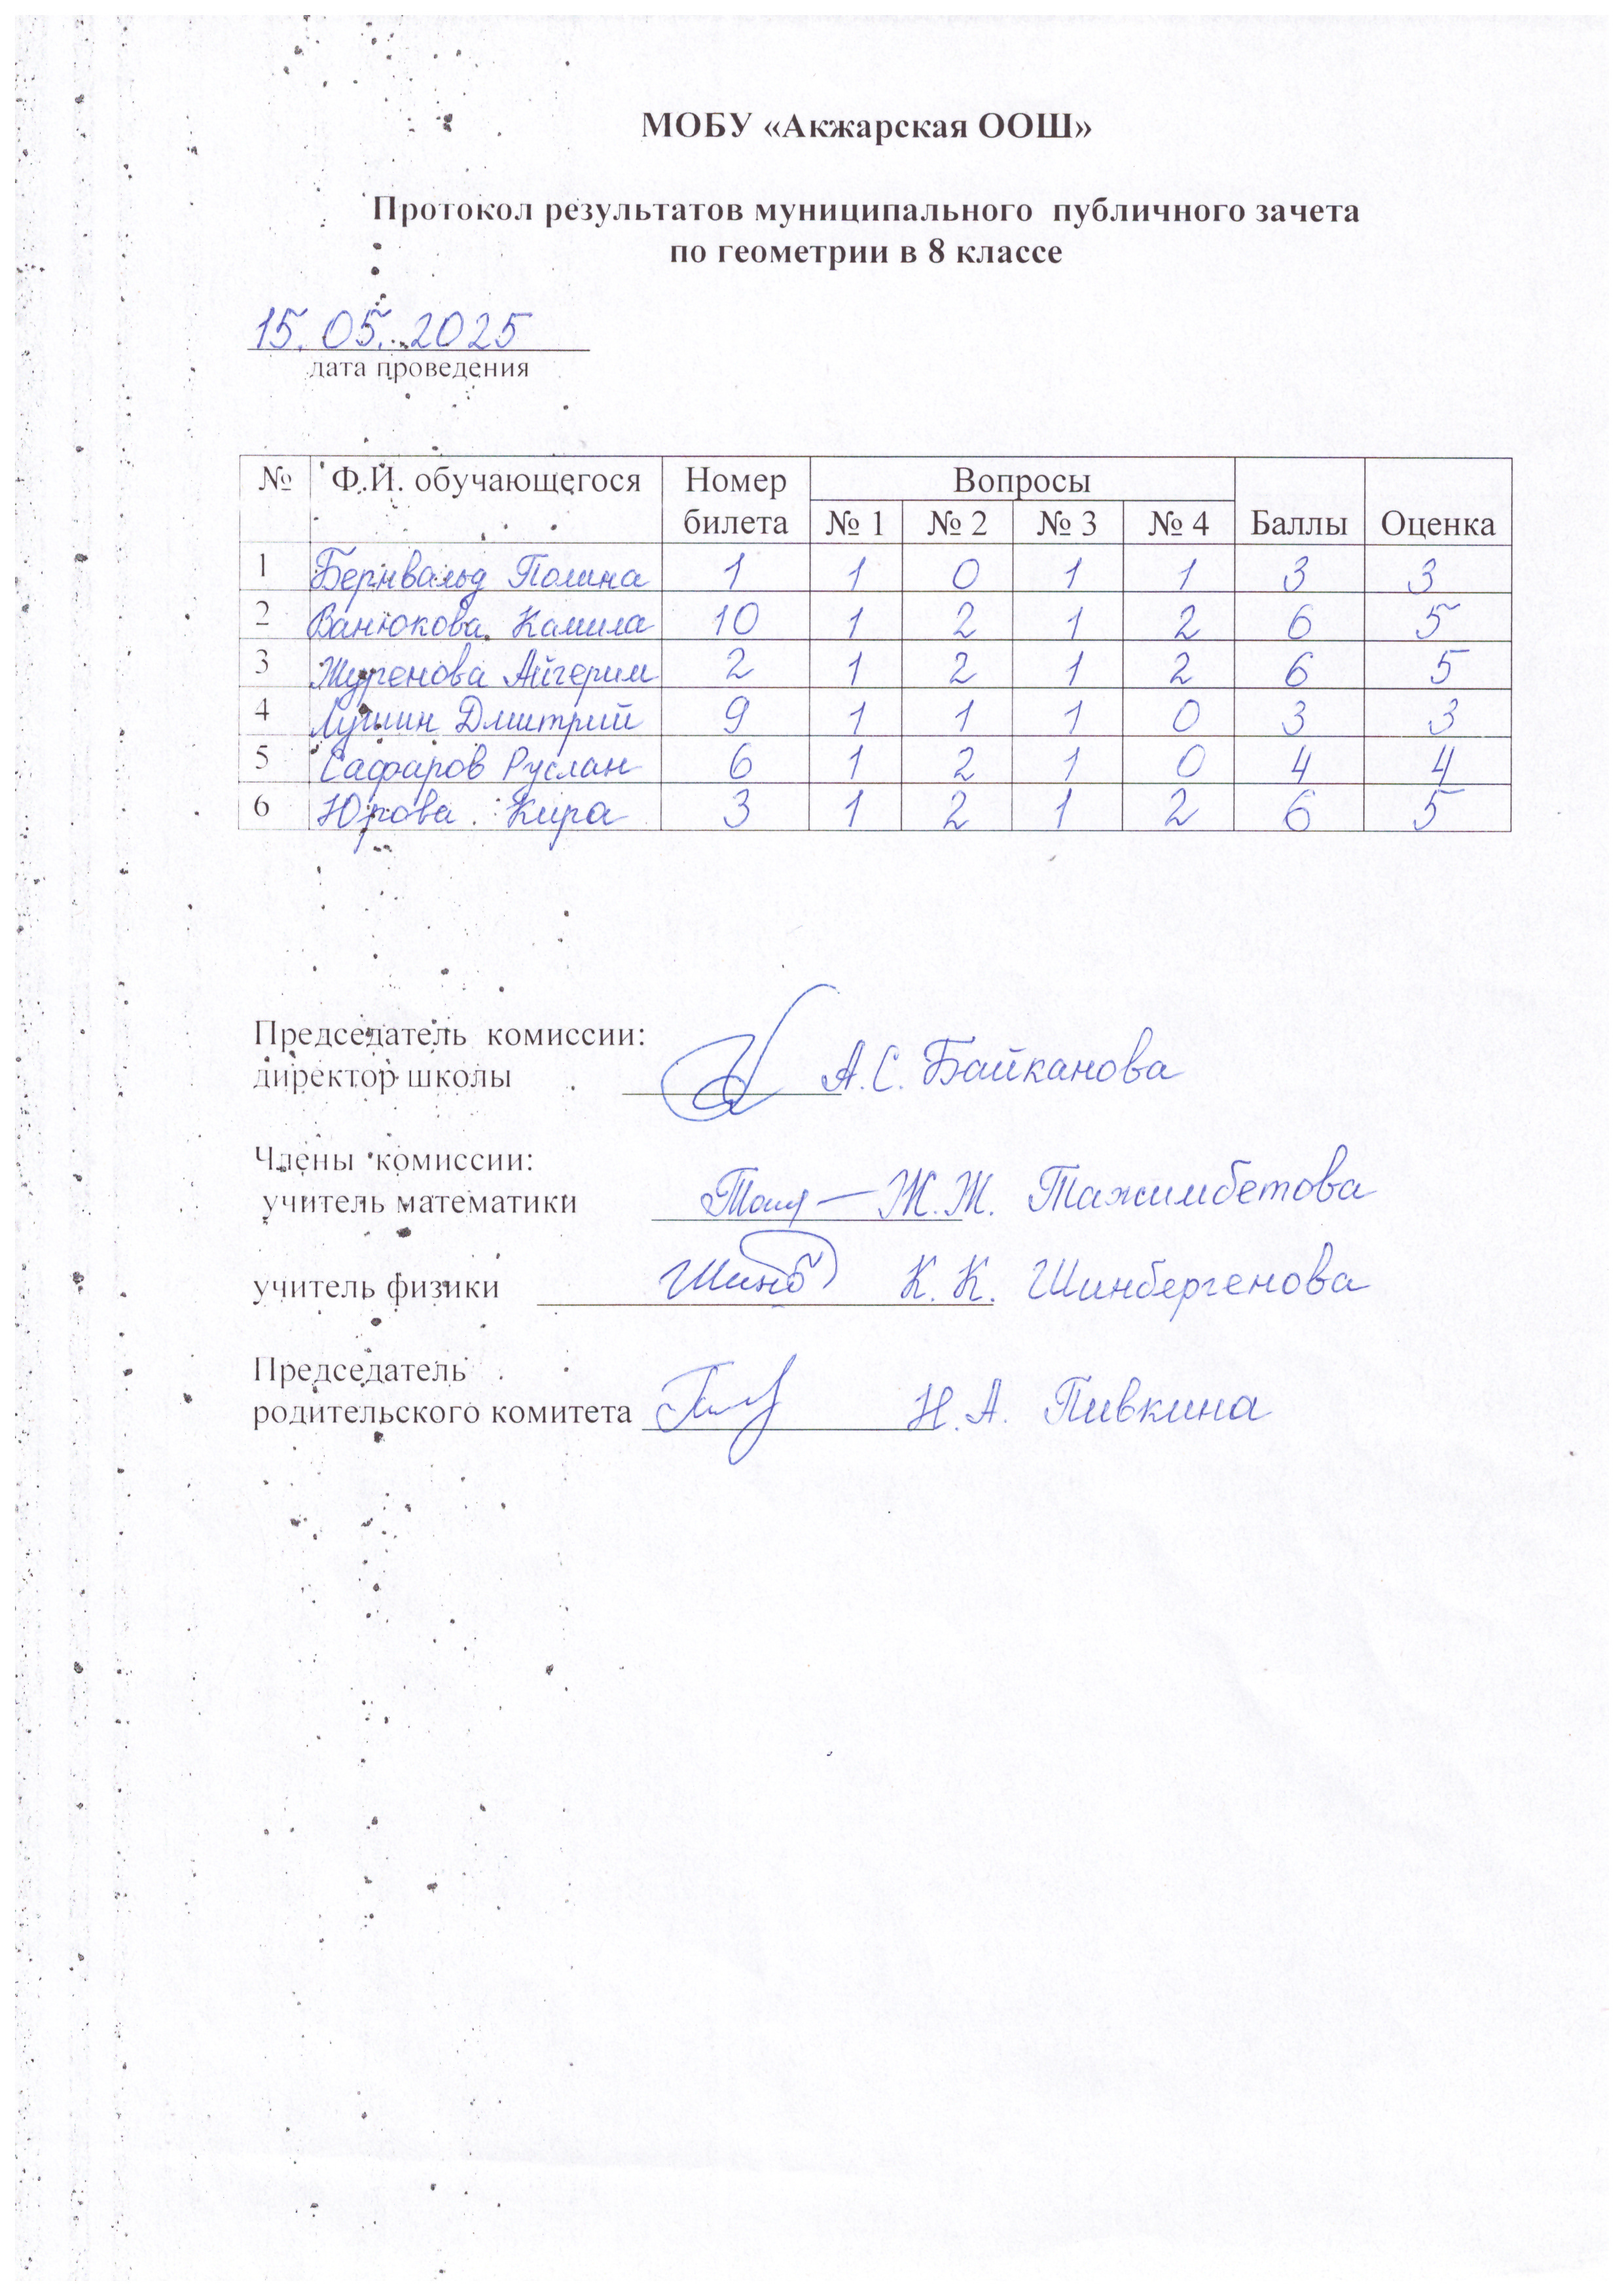 МОБУ «Акжарская ООШ»
Протокол результатов муниципального публичного зачета
по геометрии в 8 классе
15.05.2025
дата проведения
№ Ф.И. обучающегося Номер билета Вопросы Баллы Оценка
№ 1 № 2 № 3 № 4
1 Бернвальд Полина 1 1 0 1 1 3 3
2 Ванюкова Камила 10 1 2 1 2 6 5
3 Журенова Айгерим 2 1 2 1 2 6 5
4 Лушин Дмитрий 9 1 1 1 0 3 3
5 Сафаров Руслан 6 1 2 1 0 4 4
6 Юрова Кира 3 1 2 1 2 6 5
Председатель комиссии:
директор школы А.С. Байканова
Члены комиссии:
учитель математики Ж.Ж. Тажимбетова
учитель физики К.К. Шинбергенова
Председатель
родительского комитета Н.А. Пивкина